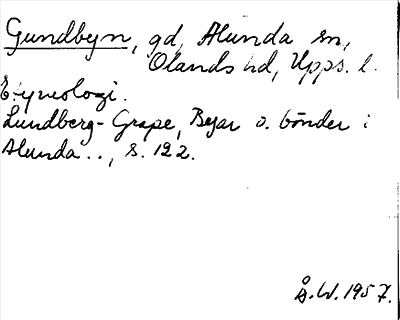 Gundbyn, gd, Alunda sn,
Olands hd, Upps. l.
Etymologi.
Lundberg-Grape, Byar o. bönder i
Alunda .., s. 122.
Å.W. 1957.